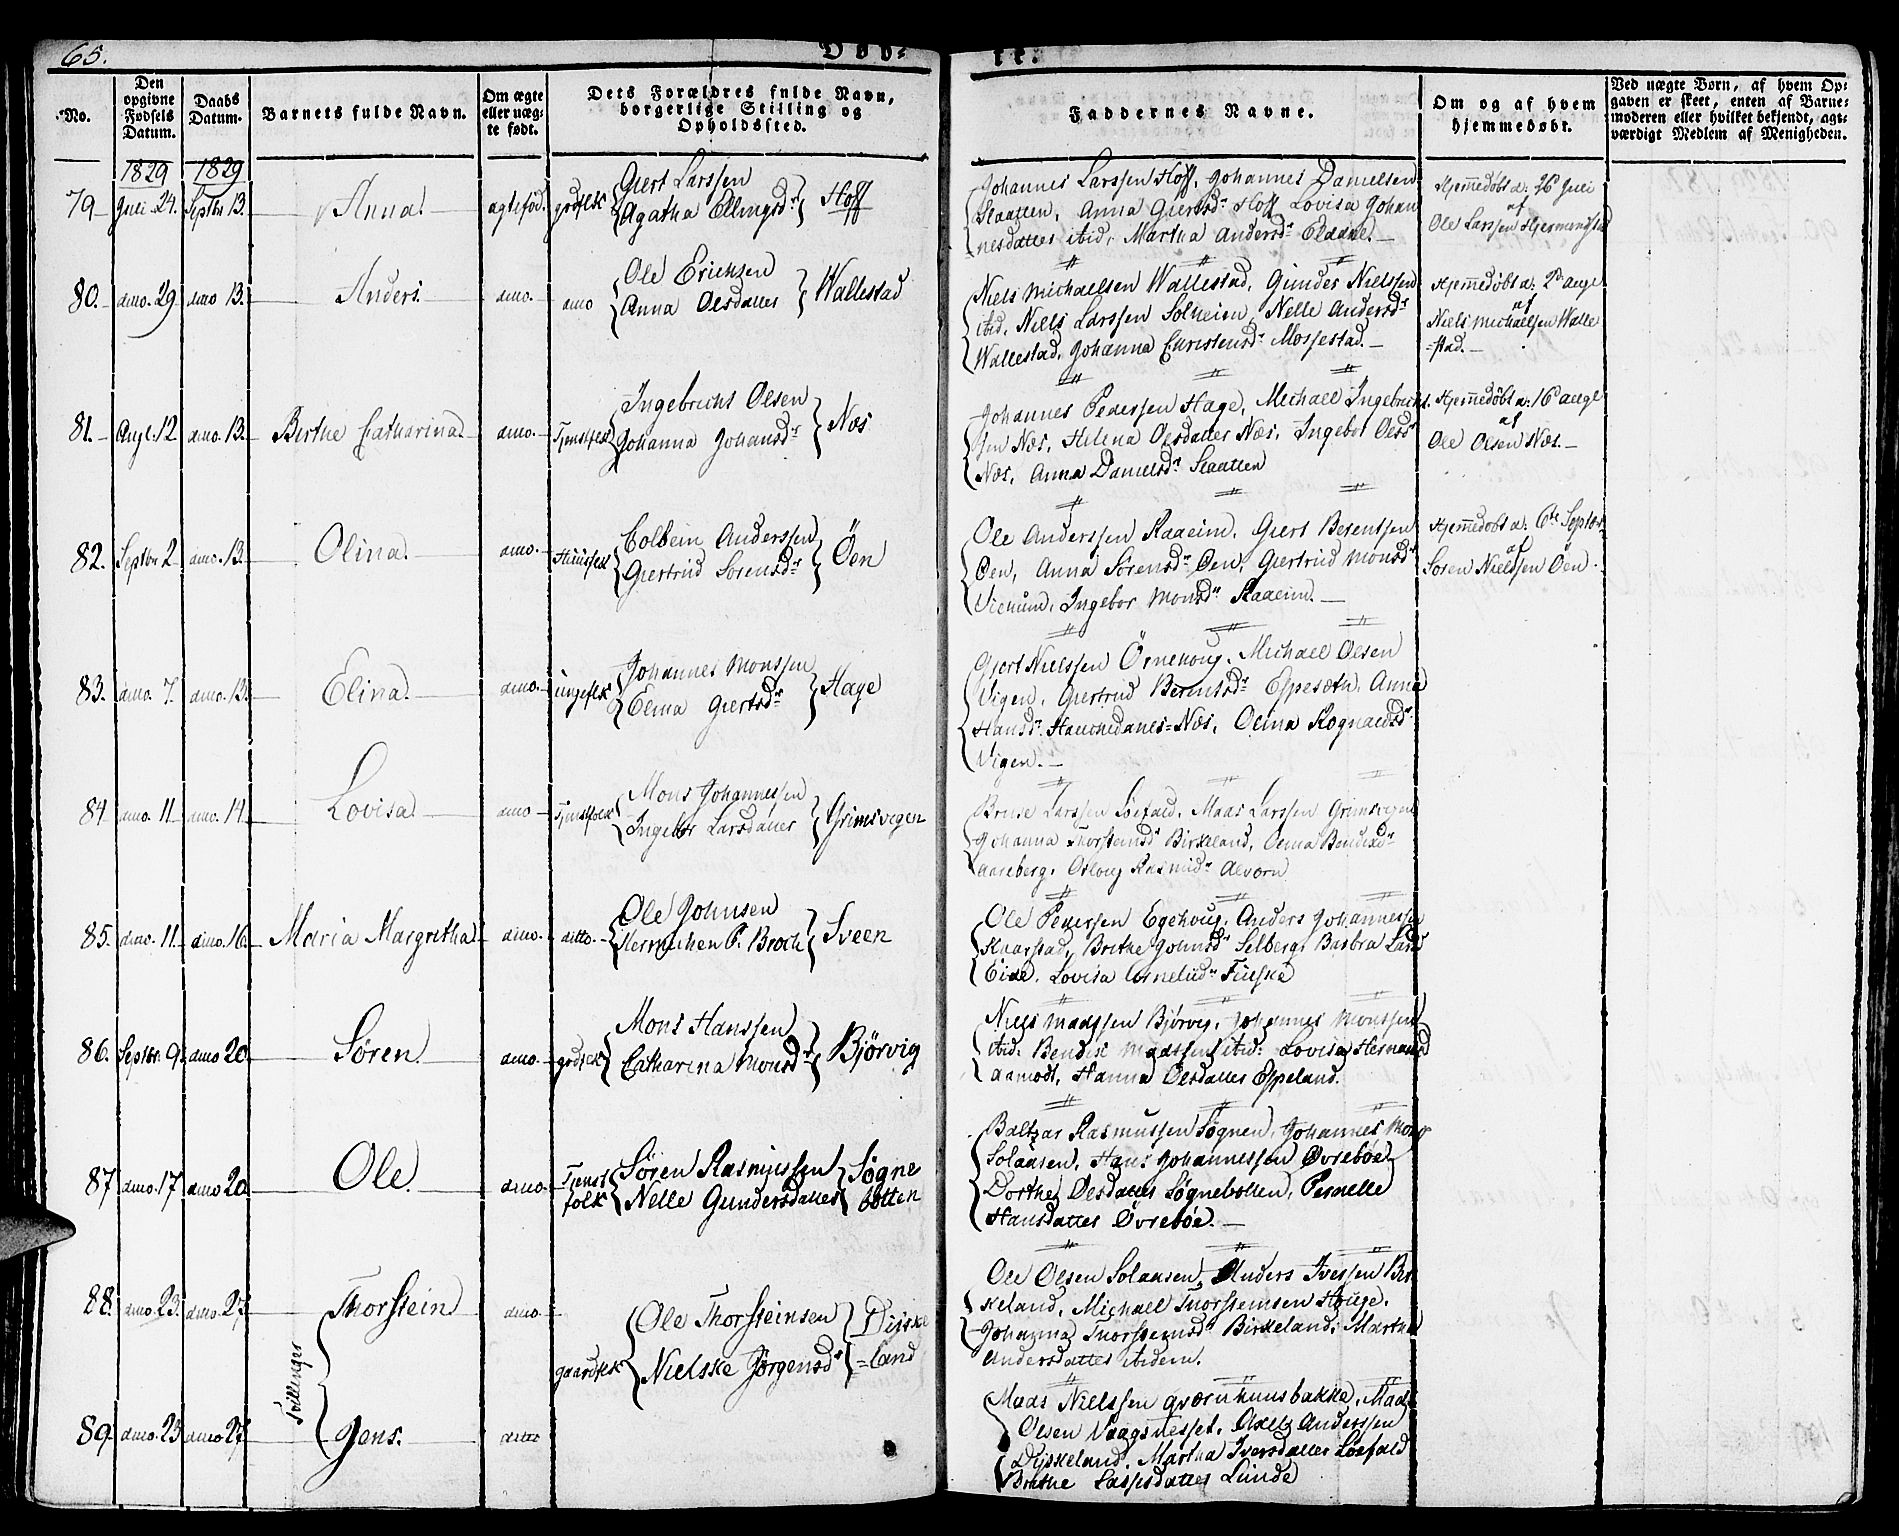 65.
Døb-
te.
No.
Den opgivne Fødsels Datum.
Daabs Datum.
Barnets fulde Navn.
Om ægte eller uægte født.
Dets Forældres fulde Navn, borgerlige Stilling og Opholdssted.
Faddernes Navne.
Om og af hvem hjemmedøbt.
Ved uægte Børn, af hvem Opgaven er skeet, enten af Barnemoderen eller hvilket bekjendt, agtværdigt Medlem af Menigheden.
1829 1829
79 Juli 24. Septbr 13. Anna. ægtefød. grdfolk
Giert Larssen
Agatha Ellingsdr Hoff
Johannes Larssen Hoff, Johannes Danielsen
Slaatten, Anna Giertsdr Hoff Lovisa Johan
nesdatter ibid, Martha Andersd Eldane.
Hjemmedøbt d. 26 Juli
af
Ole Larssen Hjermundstad
80. dmo. 29 dmo 13. Anders. dmo. dmo
Ole Erichsen
Anna Olsdatter Wallestad
Niels Michaelsen Wallestad, Gunder Nielssen
ibid, Niels Larssen Solheim, Nelle Andersdr
Wallestad, Johanna Christensdr Mossestad.
Hjemmedøbt d. 2d Augt
af
Niels Michaelsen Walle
stad.
81. Augt. 12 dmo. 13. Birthe Catharina. dmo. Tjenstfolk
Ingebricht Olsen
Johanna Johansdr Næs
Johannes Pedersen Hage, Michael Ingebricht
sen Næs, Helena Olsdatter Næs, Ingebor Olsdr
Næs, Anna Danielsdr Slaatten
Hjemmedøbt d. 16 Augt
af
Ole Olsen Næs.
82. Septbr 2 dmo. 13. Olina. dmo. Huusfolk
Colbein Anderssen
Giertrud Sorensdr Öen
Ole Anderssen Raaeim, Giert Berentsen
Öen, Anna Sörensdr Öen, Giertrud Monsdr
Viekum, Ingebor Monsdr Raaeim.
Hjemmedøbt d. 6te Septbr
af
Soren Nielssen Öen.
83. dmo. 7. dmo. 13. Elina. dmo. ungefolk
Johannes Monssen
Elina Giertsdr Hage
Giert Nielssen Örnehoug, Michael Olsen
Vigen, Giertrud Berentsdr Espesæth, Anna
Hansdr Næs, Olina Rognaldsdr
Vigen.
84 dmo. 11 dmo. 14. Lovisa. dmo Tjenstfolk
Mons Johannessen
Ingebor Larsdatter Grimsvegen
Larssen Löefald, Maas Larssen Grimsvegen
Johanna Thorsteinsd Birkeland, Bendixdr
Aareberg, Osloug Rasmidr Alvorn
85. dmo. 11 dmo. 16. Maria Margretha dmo. ditto.
Ole Johnsen
Hermichen P. Broch Sveen
Ole Pedersen Egehoug, Anders Johannessen
Kaarstad, Brithe Johnsdr Selberg, Barbra Larsd
Eide, Lovisa Corneliidr Fuske
86. Septbr. 9. dmo 20. Sören dmo grdfolk
Mons Hanssen
Catharina Monsdr Björvig
Niels Madssen Björvig, Johannes Monssen
ibid. Bendix Madssen ibid. Lovisa Hermansd
Aamodt, Hanna Olsdatter Espeland.
87 dmo. 17 dmo 20 Ole. dmo. Tjenst
folk
Sören Rasmussen
Nelle Gundersdatter
Søgne
botten
Baltzar Rasmussen Søgnen, Johannes Mons
Solaasen, Hans Johannessen Øvrebøe
Dorthe Olsdatter Søgnebotten, Pernelle
Hansdatter Øvrebøe.
88. dmo. 23. dmo. 27. Thorstein dmo.
Tvillinger
Ole Thorsteinsen
gaardfolk Nielske Jörgensdr
Dijske
land
Ole Olsen Solaasen, Anders Ivessen Bir
keland, Michael Thorsteinsen Houge,
Johanna Thorsteinsdr Birkeland, Martha
Andersdatter ibidem.
89. dmo. 23 dmo. 27. Jens. ditto
Mads Nielssen Qværnhuusbakke, Mads
Olsen Vaagsnesset, Oxeltz Anderssen
Dijskeland, Martha Iversdatter Löefald
Brethe Lassesdatter Lunde